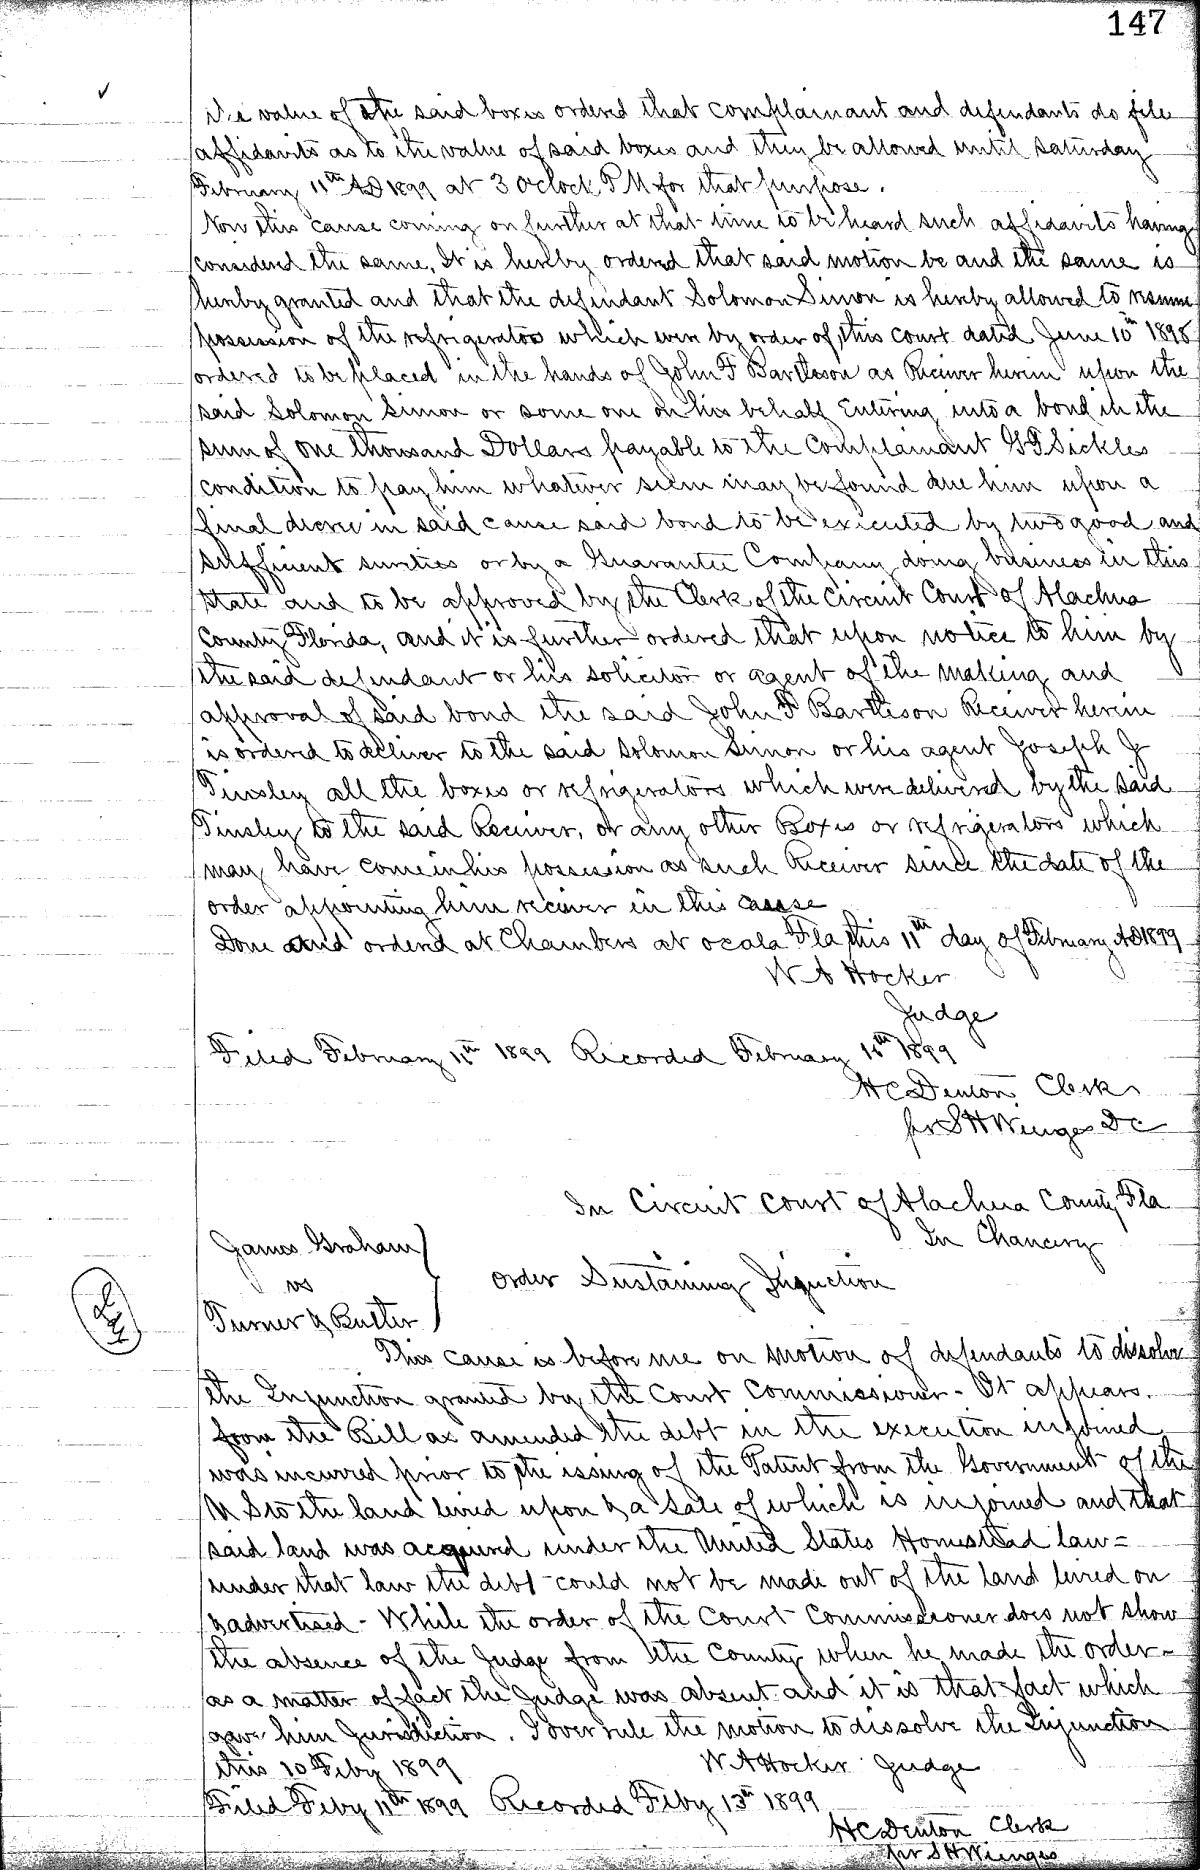 147
the value of the said boxes ordered that complainant and defendants do file
affidavits as to the value of said boxes and they be allowed until Saturday
February 11th AD 1899 at 3 Oclock PM for that purpose.
Now this cause coming on further at that time to be heard such affidavits having
considered the same, It is hereby ordered that said motion be and the same is
hereby granted and that the defendant Solomon Simon is hereby allowed to resume
possession of the refrigerators which were by order of this Court dated June 10th 1898
ordered to be placed in the hands of John F Bartleson as Receiver herein upon the
said Solomon Simon or some one on his behalf Entering into a bond in the
sum of One thousand Dollars payable to the Complainant Sickles
condition to pay him whatever sum may be found due him upon a
final decree in said cause said bond to be executed by two good and
sufficient sureties or by a Guarantee Company doing business in this
State and to be approved by the Clerk of the Circuit Court of Alachua
County Florida, and it is further ordered that upon notice to him by
the said defendant or his solicitor or agent of the making and
approval of said bond the said John F Bartleson Receiver herein
is ordered to deliver to the said Solomon Simon or his agent Joseph J
Tinsley all the boxes or refrigerators which were delivered by the said
Tinsley to the said Receiver, or any other Boxes or refrigerators which
may have come in his possession as such Receiver since the date of the
order appointing him receiver in this cause
Done and ordered at Chambers at Ocala Fla this 11th day of February AD 1899
W A Hocker
Judge
Filed February 11th 1899 Recorded February 1899
H C Denton Clerk
per S H Wienges DC
In Circuit Court of Alachua County Fla
In Chancery
James Graham
vs
Turner & Butler
Order Sustaining Injuction
This cause is before me on motion of defendants to dissolve
the Injunction granted by the Court Commissioner - It appears
from the Bill as amended the debt in the execution injoined
was incurred prior to the issuing of the Patent from the Government of the
U S to the land levied upon & a sale of which is injoined and that
said land was acquired under the United States Homestead law =
under that law the debt could not be made out of the land levied on
& advertised - While the order of the Court Commissioner does not show
the absence of the Judge from the County when he made the order -
as a matter of fact the Judge was absent and it is that fact which
gave him Jurisdiction. I overrule the motion to dissolve the Injunction
this 10 Feby 1899 W A Hocker Judge
Filed Feby 11th 1899 Recorded Feby 13th 1899
H C Denton Clerk
per S H Wienges